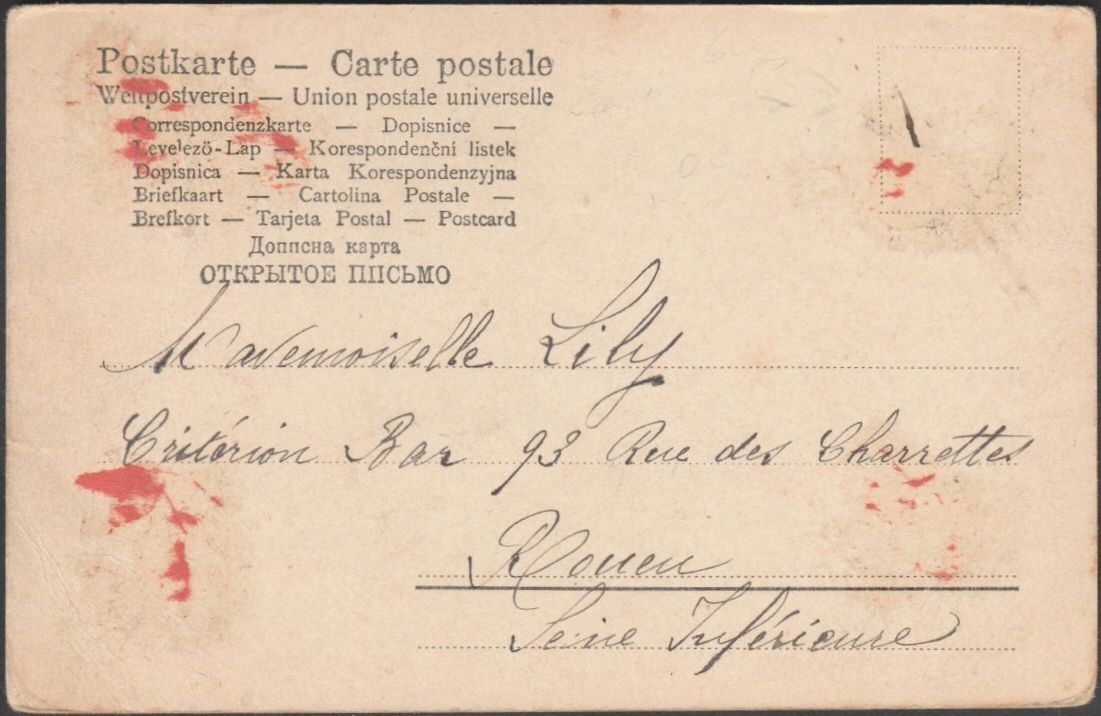 Postkarte — Carte postale
Weltpostverein — Union postale universelle
Correspondenzkarte — Dopisnice —
Levelező-Lap — Korespondenční listek
Dopisnica — Karta Korespondenzyjna
Briefkaart — Cartolina Postale —
Brefkort — Tarjeta Postal — Postcard
Доппсна карта
ОТКРЫТОЕ ППСЬМО
Mademoiselle Lily
Critérion Bar 93 Rue des Charrettes
Rouen
Seine Inférieure